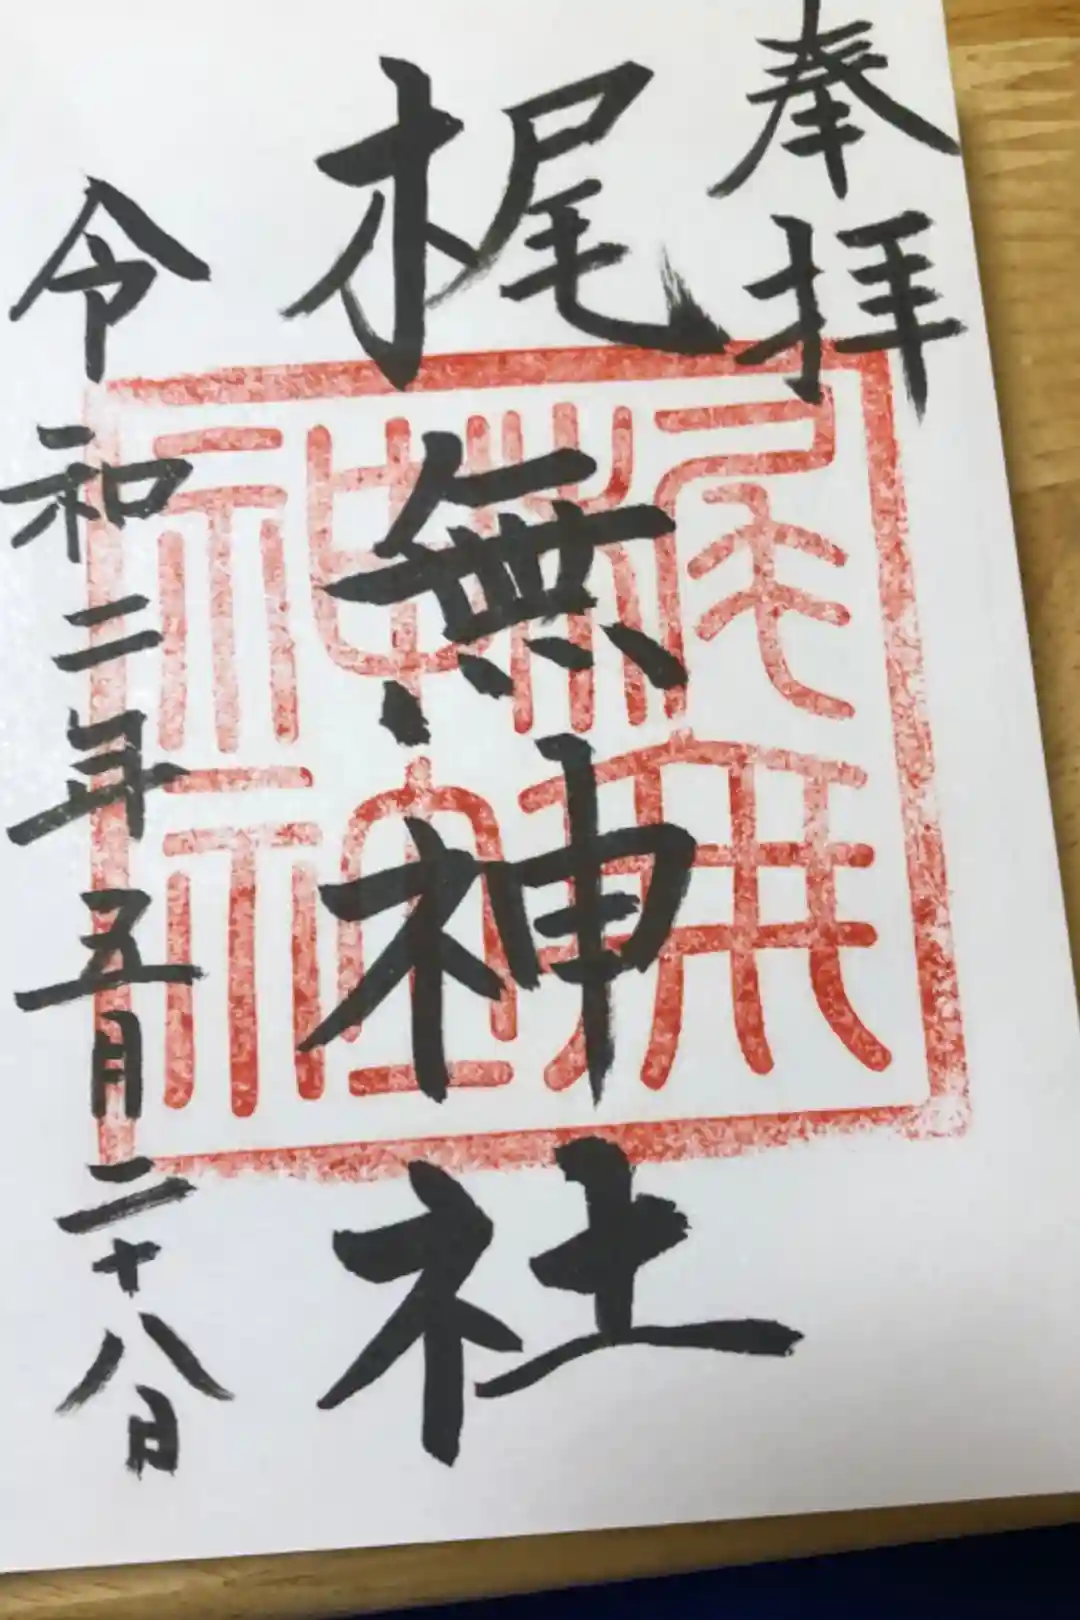 奉拝
梶無神社
令和二年五月二十八日
梶無神社